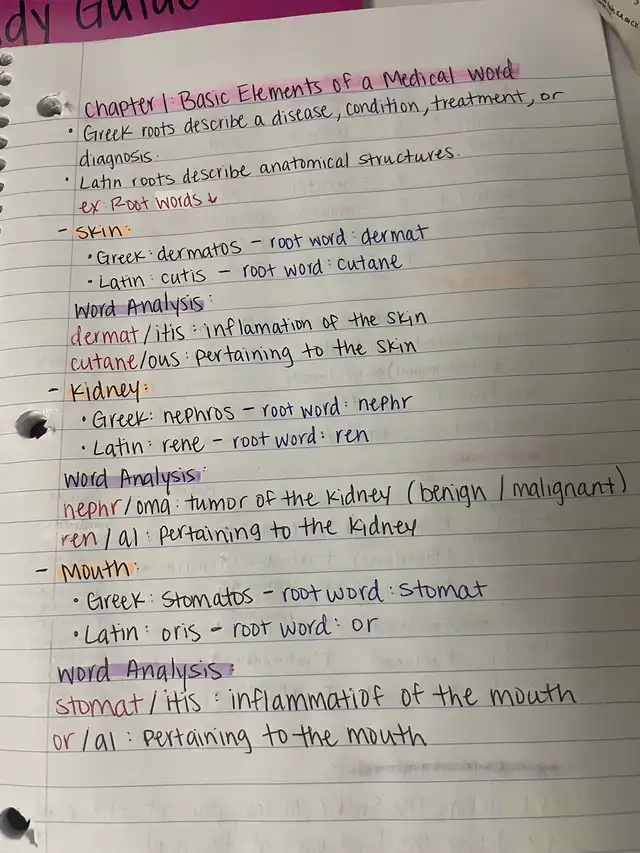 dy Guide
Chapter 1: Basic Elements of a Medical Word
• Greek roots describe a disease, condition, treatment, or
diagnosis.
• Latin roots describe anatomical structures.
ex: Root words ↓
- Skin:
• Greek: dermatos - root word: dermat
• Latin: cutis - root word: cutane
Word Analysis:
dermat/itis: inflamation of the skin
cutane/ous: pertaining to the skin
- Kidney:
• Greek: nephros - root word: nephr
• Latin: rene - root word: ren
Word Analysis:
nephr/oma: tumor of the kidney (benign / malignant)
ren / al: pertaining to the kidney
- Mouth:
• Greek: stomatos - root word: stomat
• Latin: oris - root word: or
Word Analysis:
stomat/itis: inflammatiof of the mouth
or / al: pertaining to the mouth